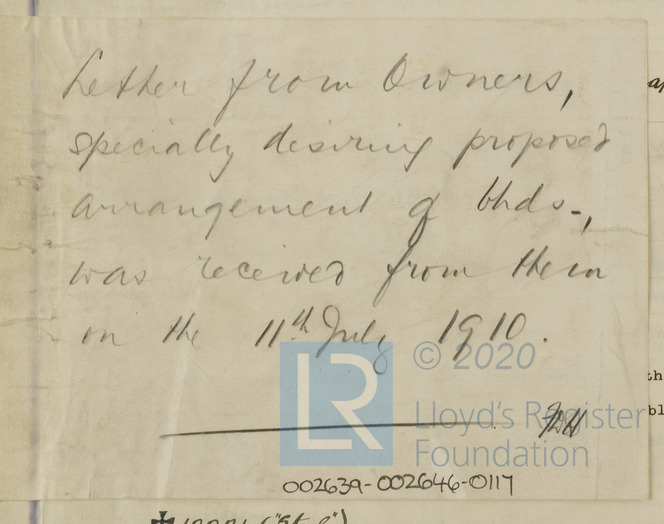 Letter from Owners,
specially desiring proposed
arrangement of bhds-,
was received from them
on the 11th July 1910.
LR © 2020
Lloyd's Register
Foundation
002639-002646-0117